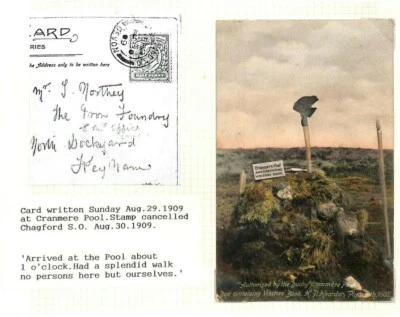 CARD
RIES
the Address only to be written here
DEVON
HALF PENNY
Mr. T. Northey
The Iron Foundry
North Dockyard
Keyham
Card written Sunday Aug.29.1909
at Cranmere Pool.Stamp cancelled
Chagford S.O. Aug.30.1909.
'Arrived at the Pool about
1 o'clock.Had a splendid walk
no persons here but ourselves.'
Cranmere Pool
"Authorised by the Duchy" Cranmere Pool
Box containing Visitors' Book.